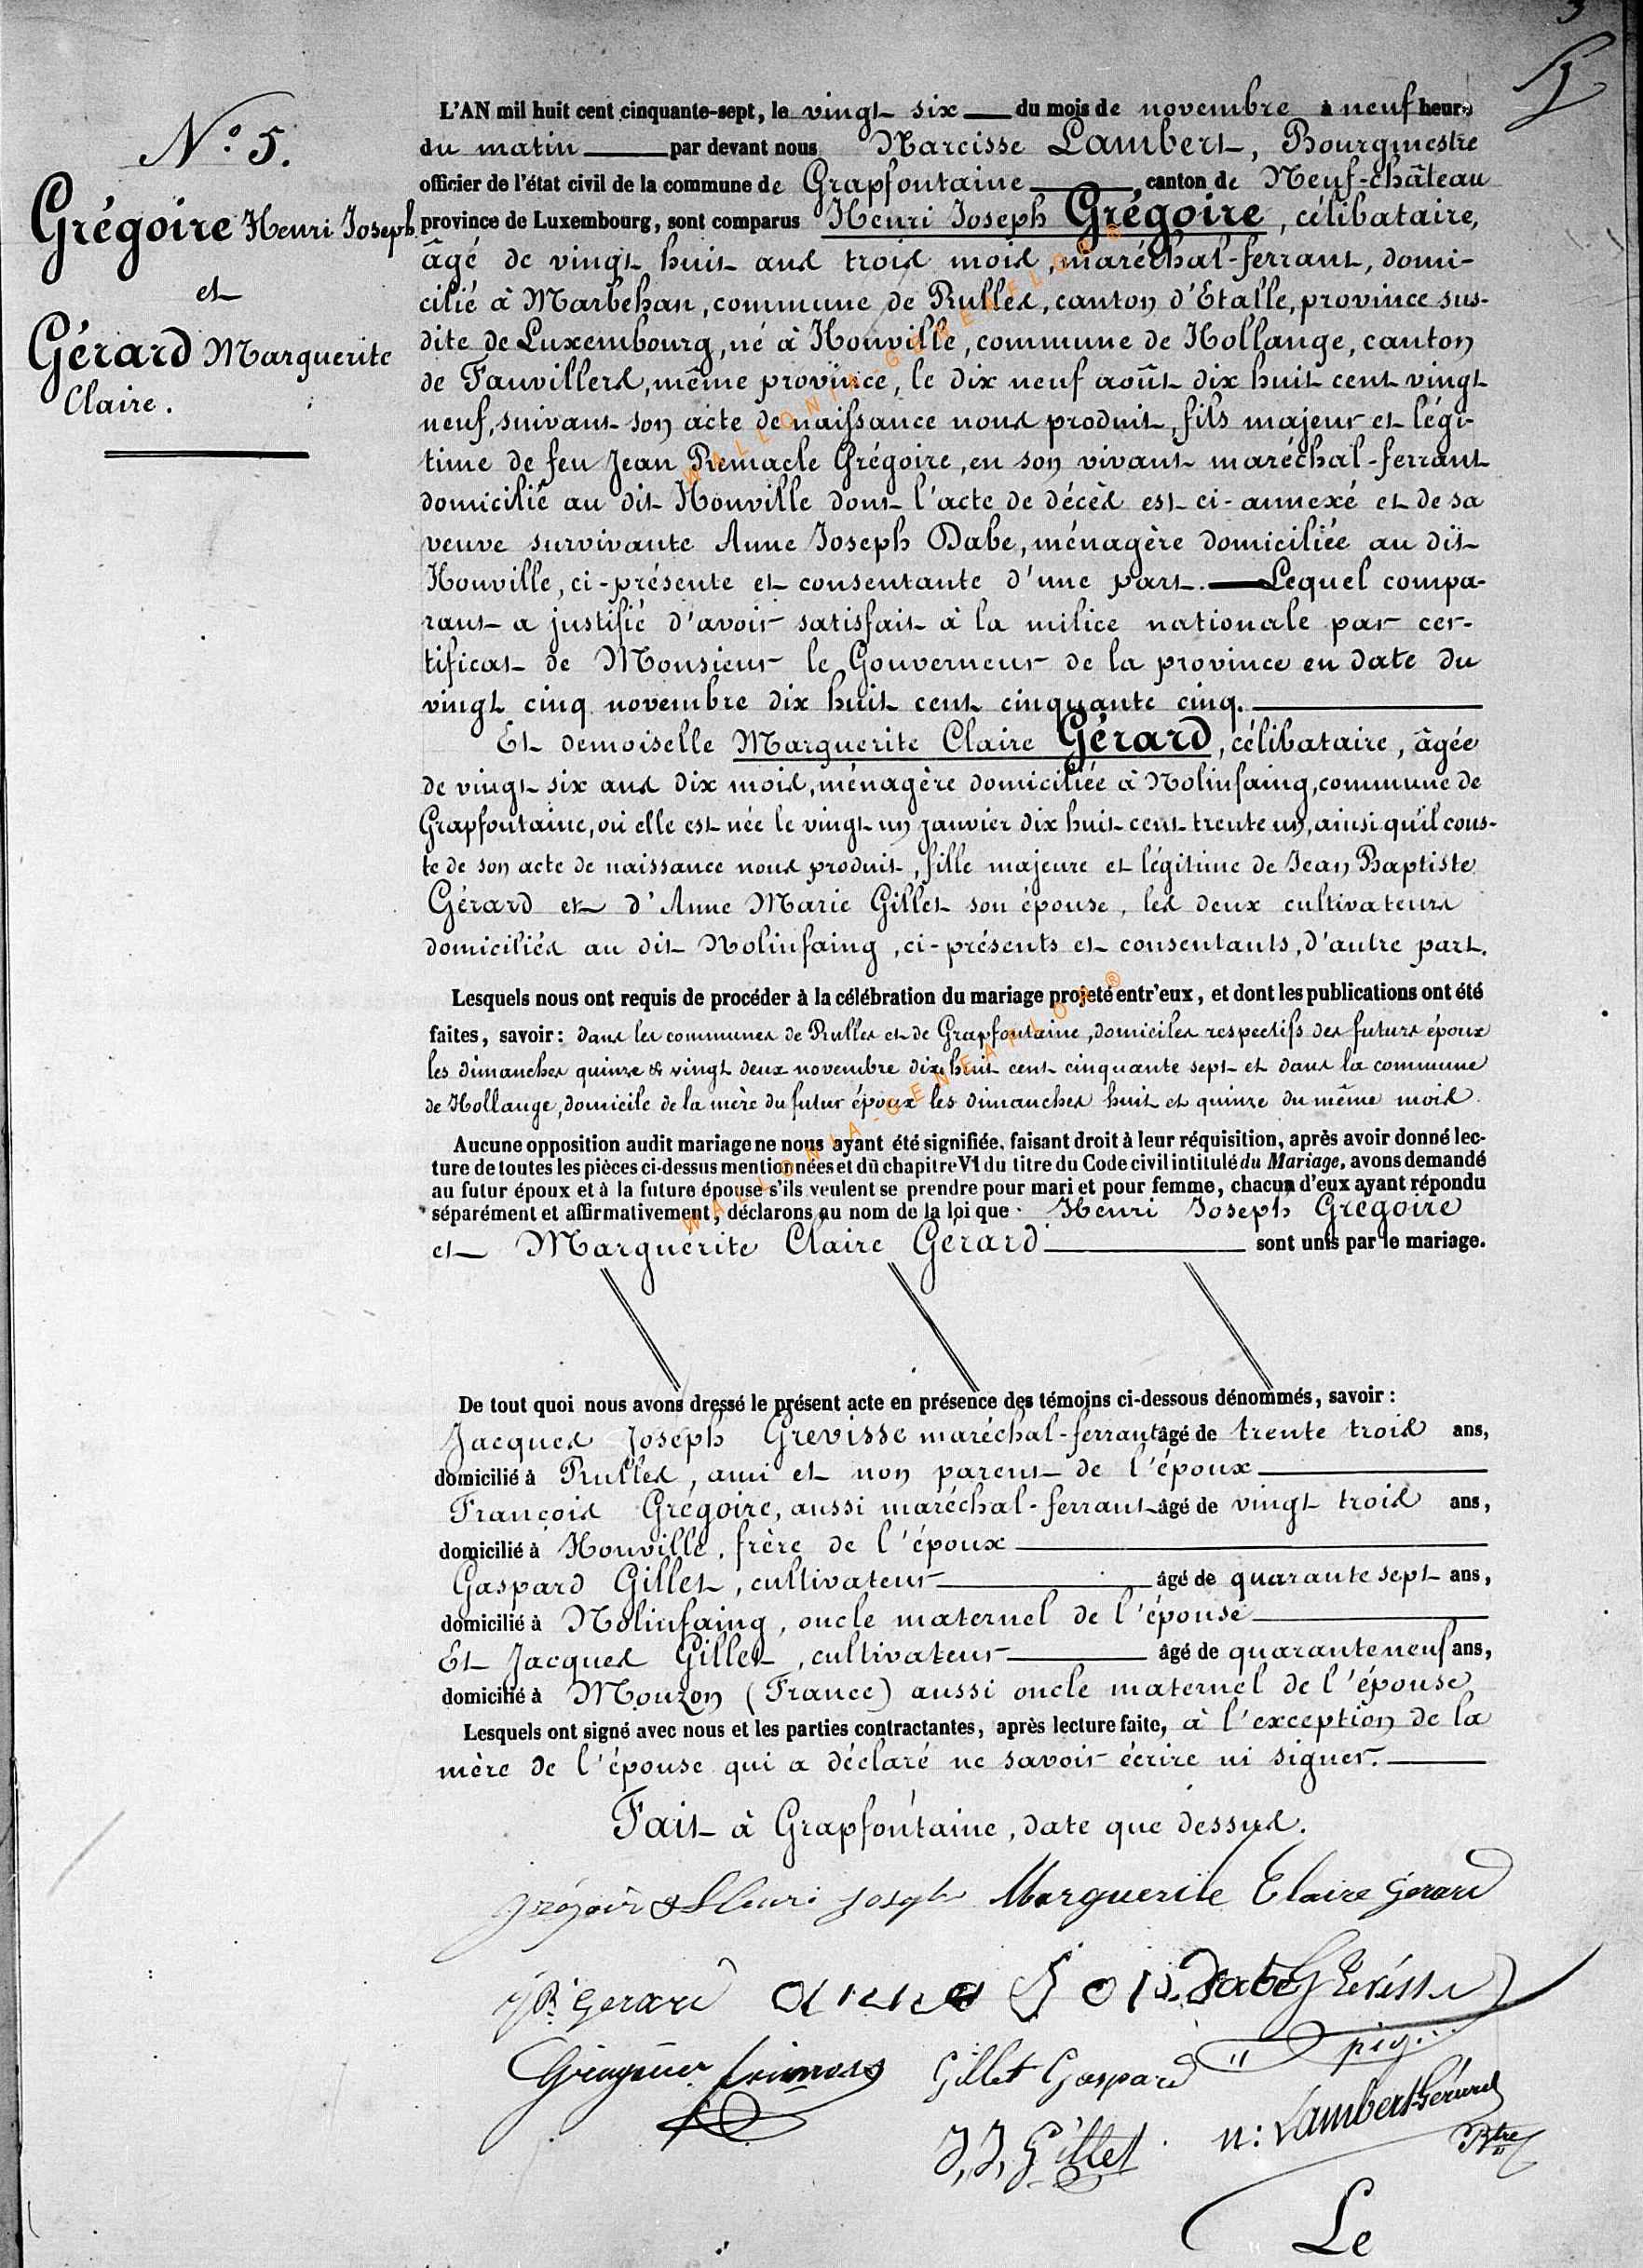 N.o 5.
Grégoire Henri Joseph
et
Gérard Marguerite
Claire.
L'AN mil huit cent cinquante-sept, le vingt six du mois de novembre à neuf heures
du matin par devant nous Narcisse Lambert, Bourgmestre
officier de l'état civil de la commune de Grapfontaine, canton de Neuf-château
province de Luxembourg, sont comparus Henri Joseph Grégoire, célibataire,
âgé de vingt huit ans trois mois, maréchal-ferrant, domi-
cilié à Marbehan, commune de Rulles, canton d'Etalle, province sus-
dite de Luxembourg, né à Honville, commune de Hollange, canton
de Fauvillers, même province, le dix neuf août dix huit cent vingt
neuf, suivant son acte de naissance nous produit, fils majeur et légi-
time de feu Jean Remacle Grégoire, en son vivant maréchal-ferrant
domicilié au dit Honville dont l'acte de décès est ci-annexé et de sa
veuve survivante Anne Joseph Dabe, ménagère domiciliée au dit
Honville, ci-présente et consentante d'une part. Lequel compa-
rant a justifié d'avoir satisfait à la milice nationale par cer-
tificat de Monsieur le Gouverneur de la province en date du
vingt cinq novembre dix huit cent cinquante cinq.
Et demoiselle Marguerite Claire Gérard, célibataire, âgée
de vingt six ans dix mois, ménagère domiciliée à Nolinfaing, commune de
Grapfontaine, où elle est née le vingt un janvier dix huit cent trente un, ainsi qu'il cons-
te de son acte de naissance nous produit, fille majeure et légitime de Jean Baptiste
Gérard et d'Anne Marie Gillet son épouse, les deux cultivateurs
domiciliés au dit Nolinfaing, ci-présents et consentants, d'autre part.
Lesquels nous ont requis de procéder à la célébration du mariage projeté entr'eux, et dont les publications ont été
faites, savoir: dans les communes de Rulles et de Grapfontaine, domiciles respectifs des futurs époux
les dimanches quinze & vingt deux novembre dix huit cent cinquante sept et dans la commune
de Hollange, domicile de la mère du futur époux les dimanches huit et quinze du même mois.
Aucune opposition audit mariage ne nous ayant été signifiée, faisant droit à leur réquisition, après avoir donné lec-
ture de toutes les pièces ci-dessus mentionnées et du chapitre VI du titre du Code civil intitulé du Mariage, avons demandé
au futur époux et à la future épouse s'ils veulent se prendre pour mari et pour femme, chacun d'eux ayant répondu
séparément et affirmativement, déclarons au nom de la loi que Henri Joseph Grégoire
et Marguerite Claire Gérard sont unis par le mariage.
De tout quoi nous avons dressé le présent acte en présence des témoins ci-dessous dénommés, savoir:
Jacques Joseph Grevisse maréchal-ferrant âgé de trente trois ans,
domicilié à Rulles, ami et non parent de l'époux
François Grégoire, aussi maréchal-ferrant âgé de vingt trois ans,
domicilié à Honville, frère de l'époux
Gaspard Gillet, cultivateur âgé de quarante sept ans,
domicilié à Nolinfaing, oncle maternel de l'épouse
Et Jacques Gillet, cultivateur âgé de quarante neuf ans,
domicilié à Mouzon (France) aussi oncle maternel de l'épouse
Lesquels ont signé avec nous et les parties contractantes, après lecture faite, à l'exception de la
mère de l'épouse qui a déclaré ne savoir écrire ni signer.
Fait à Grapfontaine, date que dessus.
Grégoire Henri Joseph Marguerite Claire Gérard
JB. Gerard anne Jos. Dabe Grévisse
Gillet Gaspard
J, J, Gillet n: Lambert-Gérard
Btre
Le
WALLONIA-GENEAFLOR®
WALLONIA-GENEAFLOR®